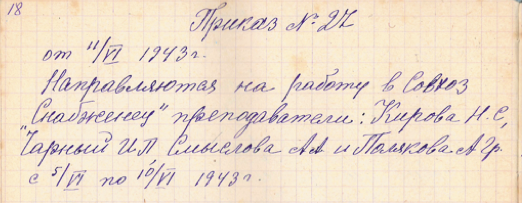 18
Приказ № 27
от 11/VI 1943 г.
Направляются на работу в Совхоз
"Снабженец" преподаватели: Кирова Н.С,
Чарный И П Смыслова АА и Полякова А Гр.
с 5/VI по 10/VI 1943 г.